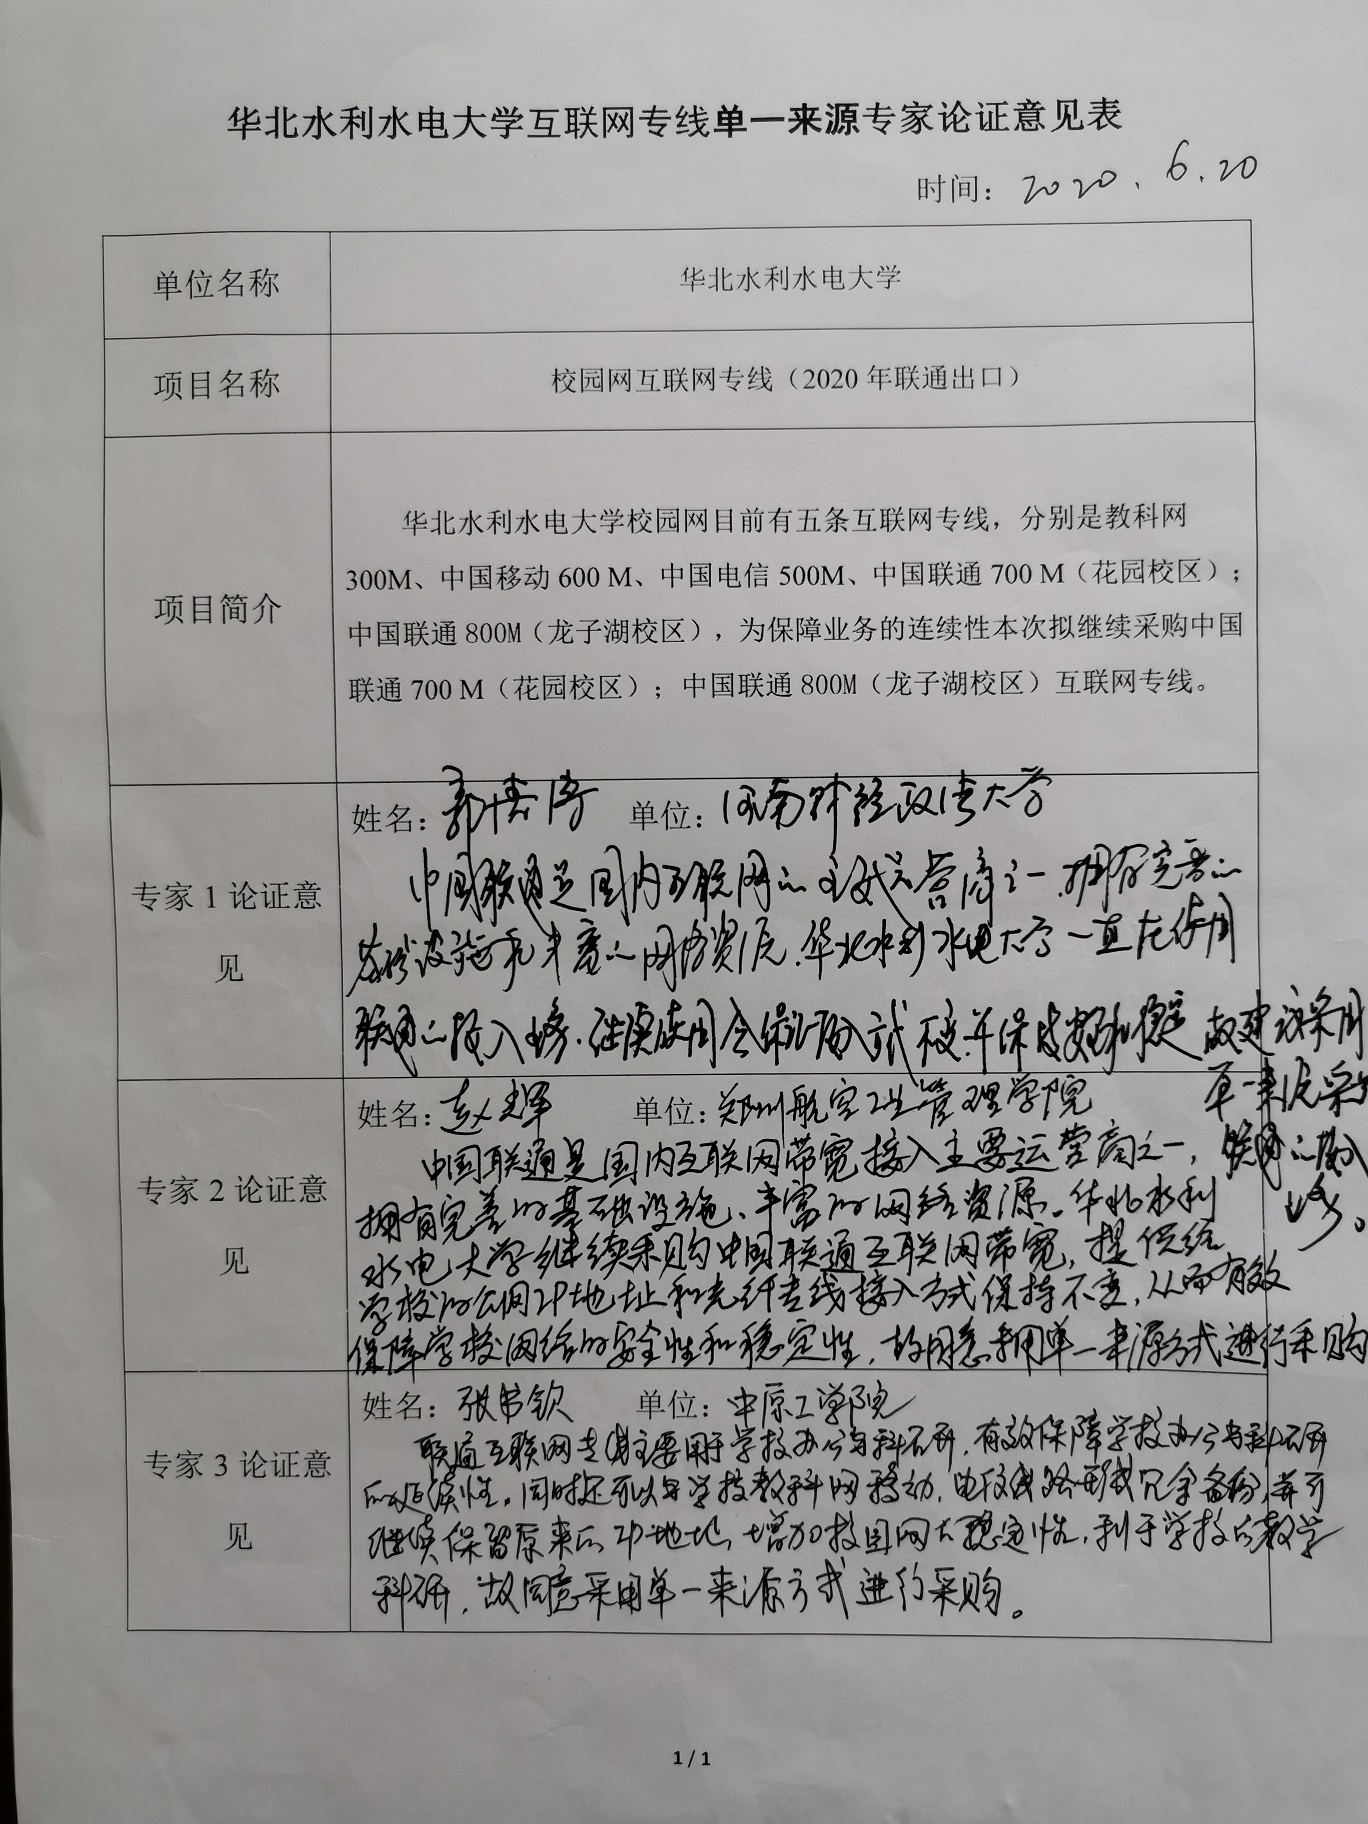 华北水利水电大学互联网专线单一来源专家论证意见表
时间：2020.6.20
单位名称
华北水利水电大学
项目名称
校园网互联网专线（2020 年联通出口）
项目简介
华北水利水电大学校园网目前有五条互联网专线，分别是教科网
300M、中国移动 600 M、中国电信 500M、中国联通 700 M（花园校区）；
中国联通 800M（龙子湖校区），为保障业务的连续性本次拟继续采购中国
联通 700 M（花园校区）；中国联通 800M（龙子湖校区）互联网专线。
专家 1 论证意
见
姓名： 单位：河南财经政法大学
中国联通是国内互联网的主要运营商之一.拥有完善的
基础设施和丰富的网络资源.华北水利水电大学一直在使用
联通的接入服务.继续使用会保证接入方式不变.并保持安全和稳定 故建议采用
单一来源采购
联通的接入
服务。
专家 2 论证意
见
姓名：赵辉 单位：郑州航空工业管理学院
中国联通是国内互联网带宽接入主要运营商之一，
拥有完善的基础设施、丰富的网络资源。华北水利
水电大学继续采购中国联通互联网带宽，提供给
学校的公网IP地址和光纤专线接入方式保持不变，从而有效
保障学校网络的安全性和稳定性，故同意采用单一来源方式进行采购
专家 3 论证意
见
姓名：张书钦 单位：中原工学院
联通互联网专线主要用于学校办公与科研，有效保障学校办公与科研
的延续性。同时还可以与学校教科网移动，电信线路形成冗余备份，并可
继续保留原来的IP地址，增加校园网的稳定性，利于学校的教学
科研，故同意采用单一来源方式进行采购。
1 / 1